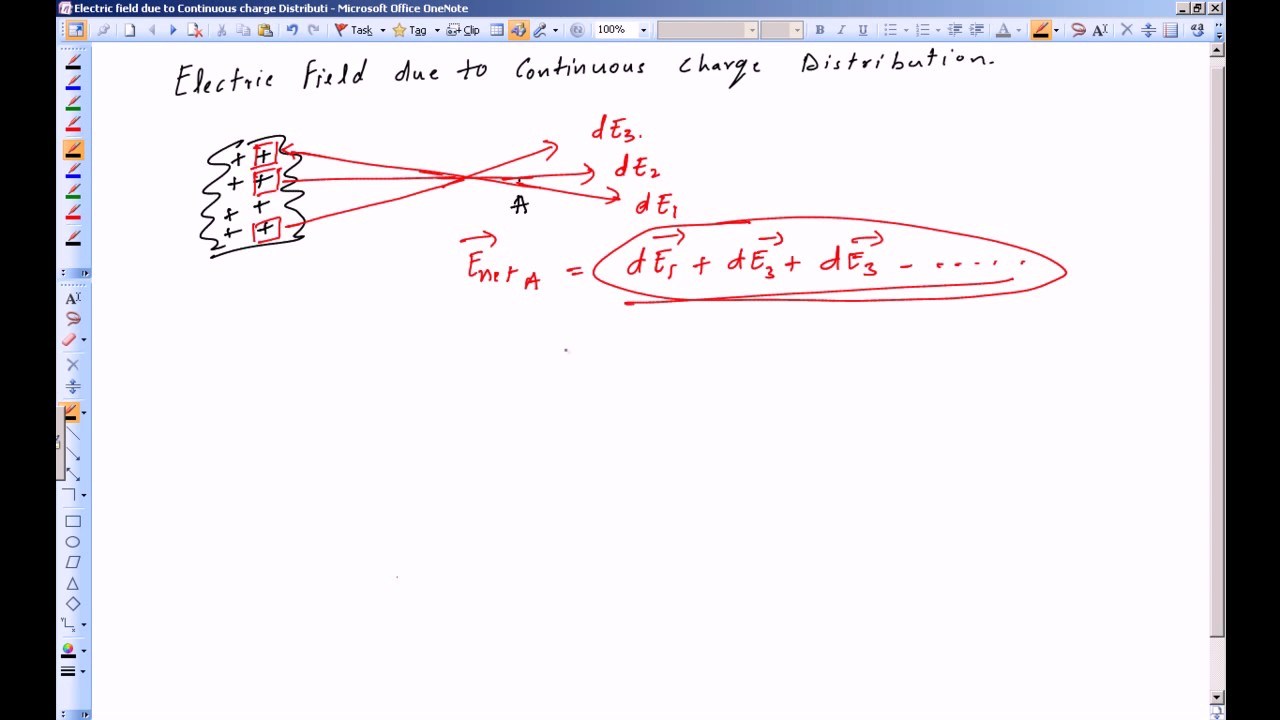 Electric field due to Continuous charge Distributi - Microsoft Office OneNote
Task Tag Clip 100% B I U
Electric Field due to Continuous charge Distribution.
dE3.
dE2
A
dE1
E net A = dE1 + dE3 + dE3 - .....